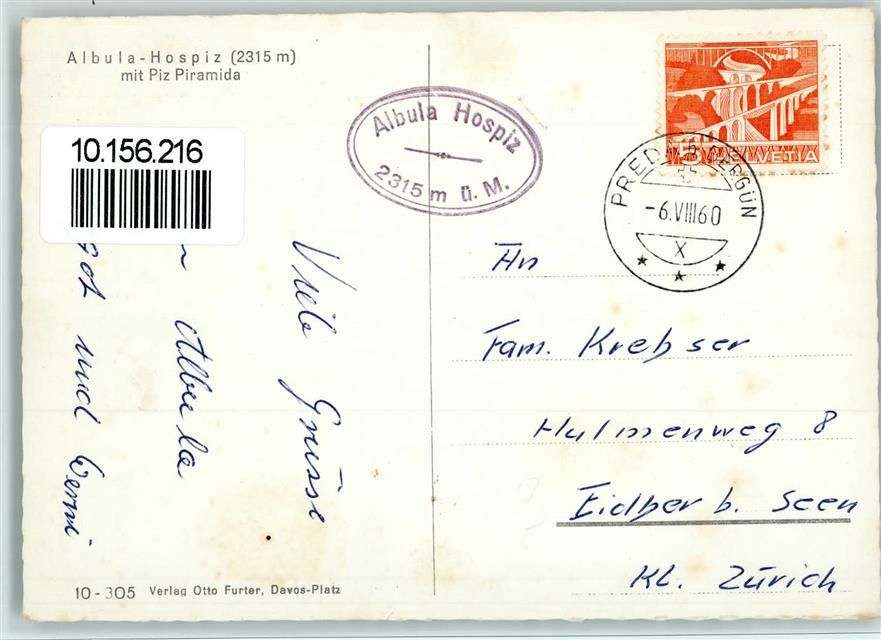 Albula-Hospiz (2315 m)
mit Piz Piramida
10.156.216
Albula Hospiz
2315 m ü. M.
5 HELVETIA
PREDA BERGÜN
-6.VIII60
X
Viele Grüsse
Albula
und
An
Fam. Krebser
Hulmenweg 8
Eidber b. Seen
Kt. Zürich
10-305 Verlag Otto Furter, Davos-Platz